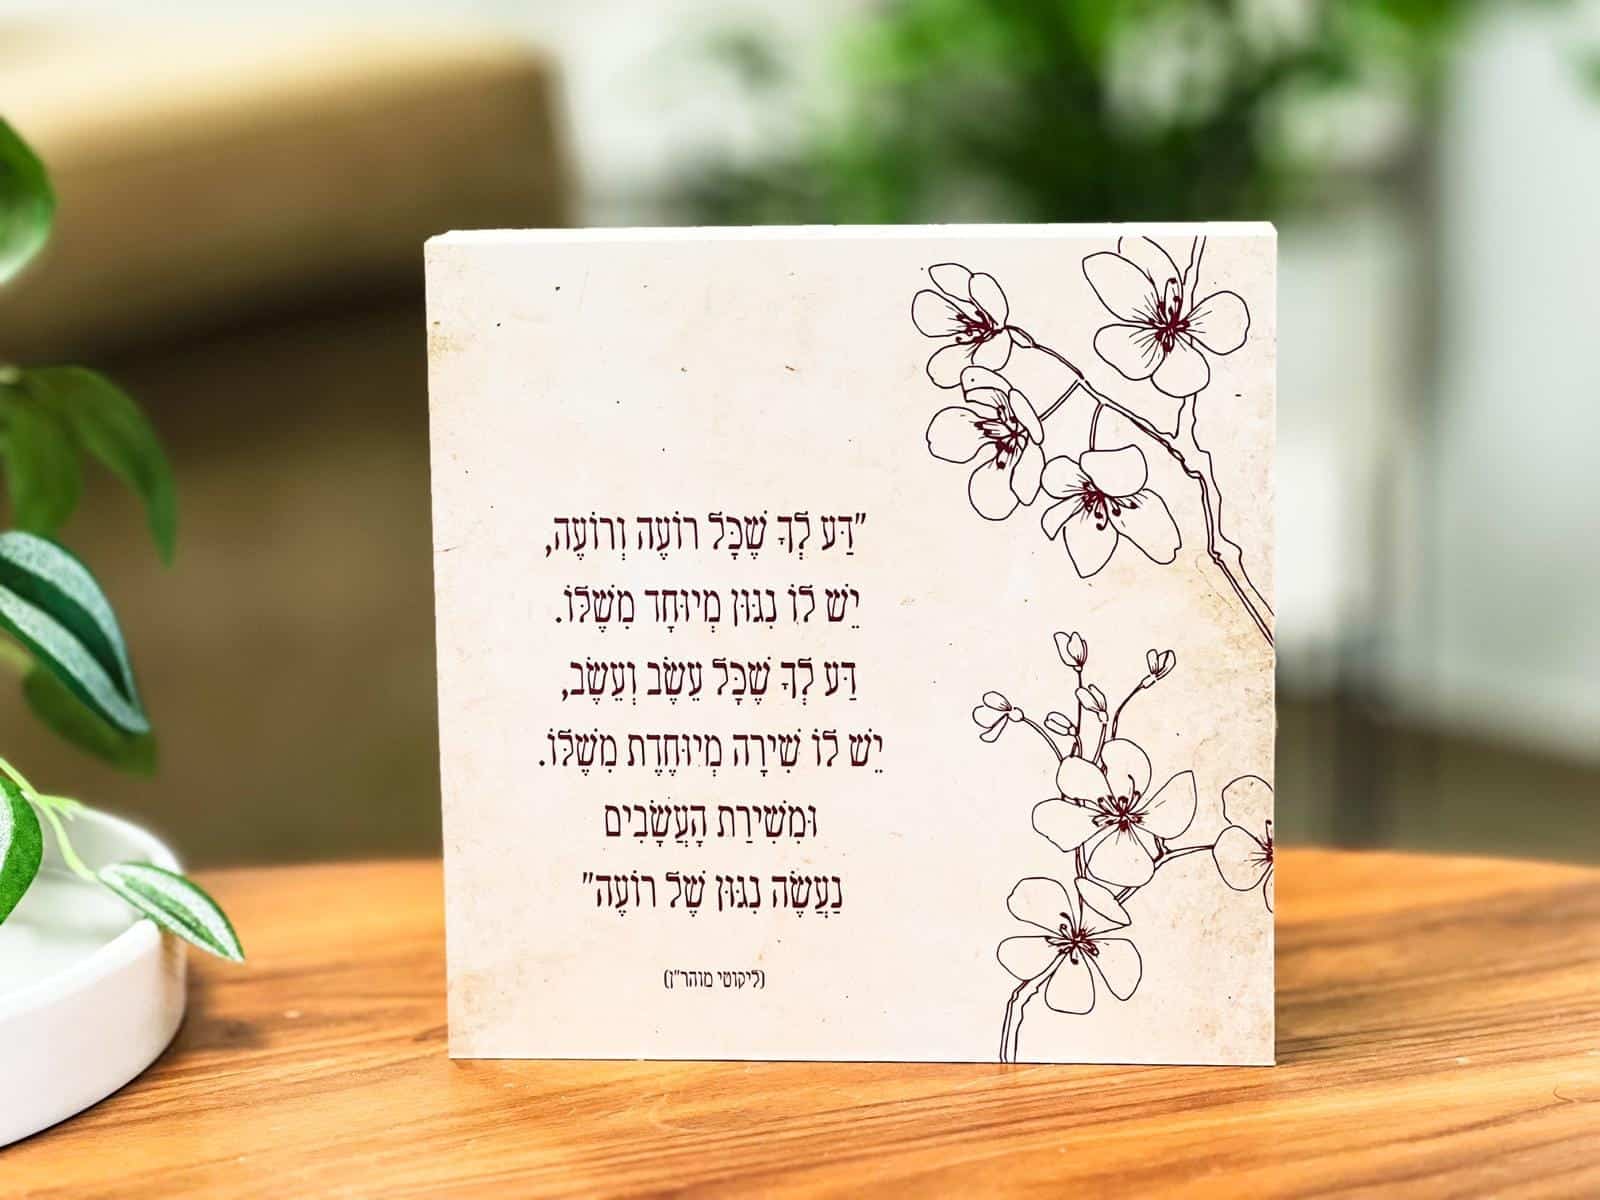 "דַּע לְךָ שֶׁכָּל רוֹעֶה וְרוֹעֶה,
יֵשׁ לוֹ נִגּוּן מְיוּחָד מִשֶּׁלּוֹ.
דַּע לְךָ שֶׁכָּל עֵשֶׂב וְעֵשֶׂב,
יֵשׁ לוֹ שִׁירָה מְיוּחֶדֶת מִשֶּׁלּוֹ.
וּמִשִּׁירַת הָעֲשָׂבִים
נַעֲשֶׂה נִגּוּן שֶׁל רוֹעֶה"
(ליקוטי מוהר"ן)